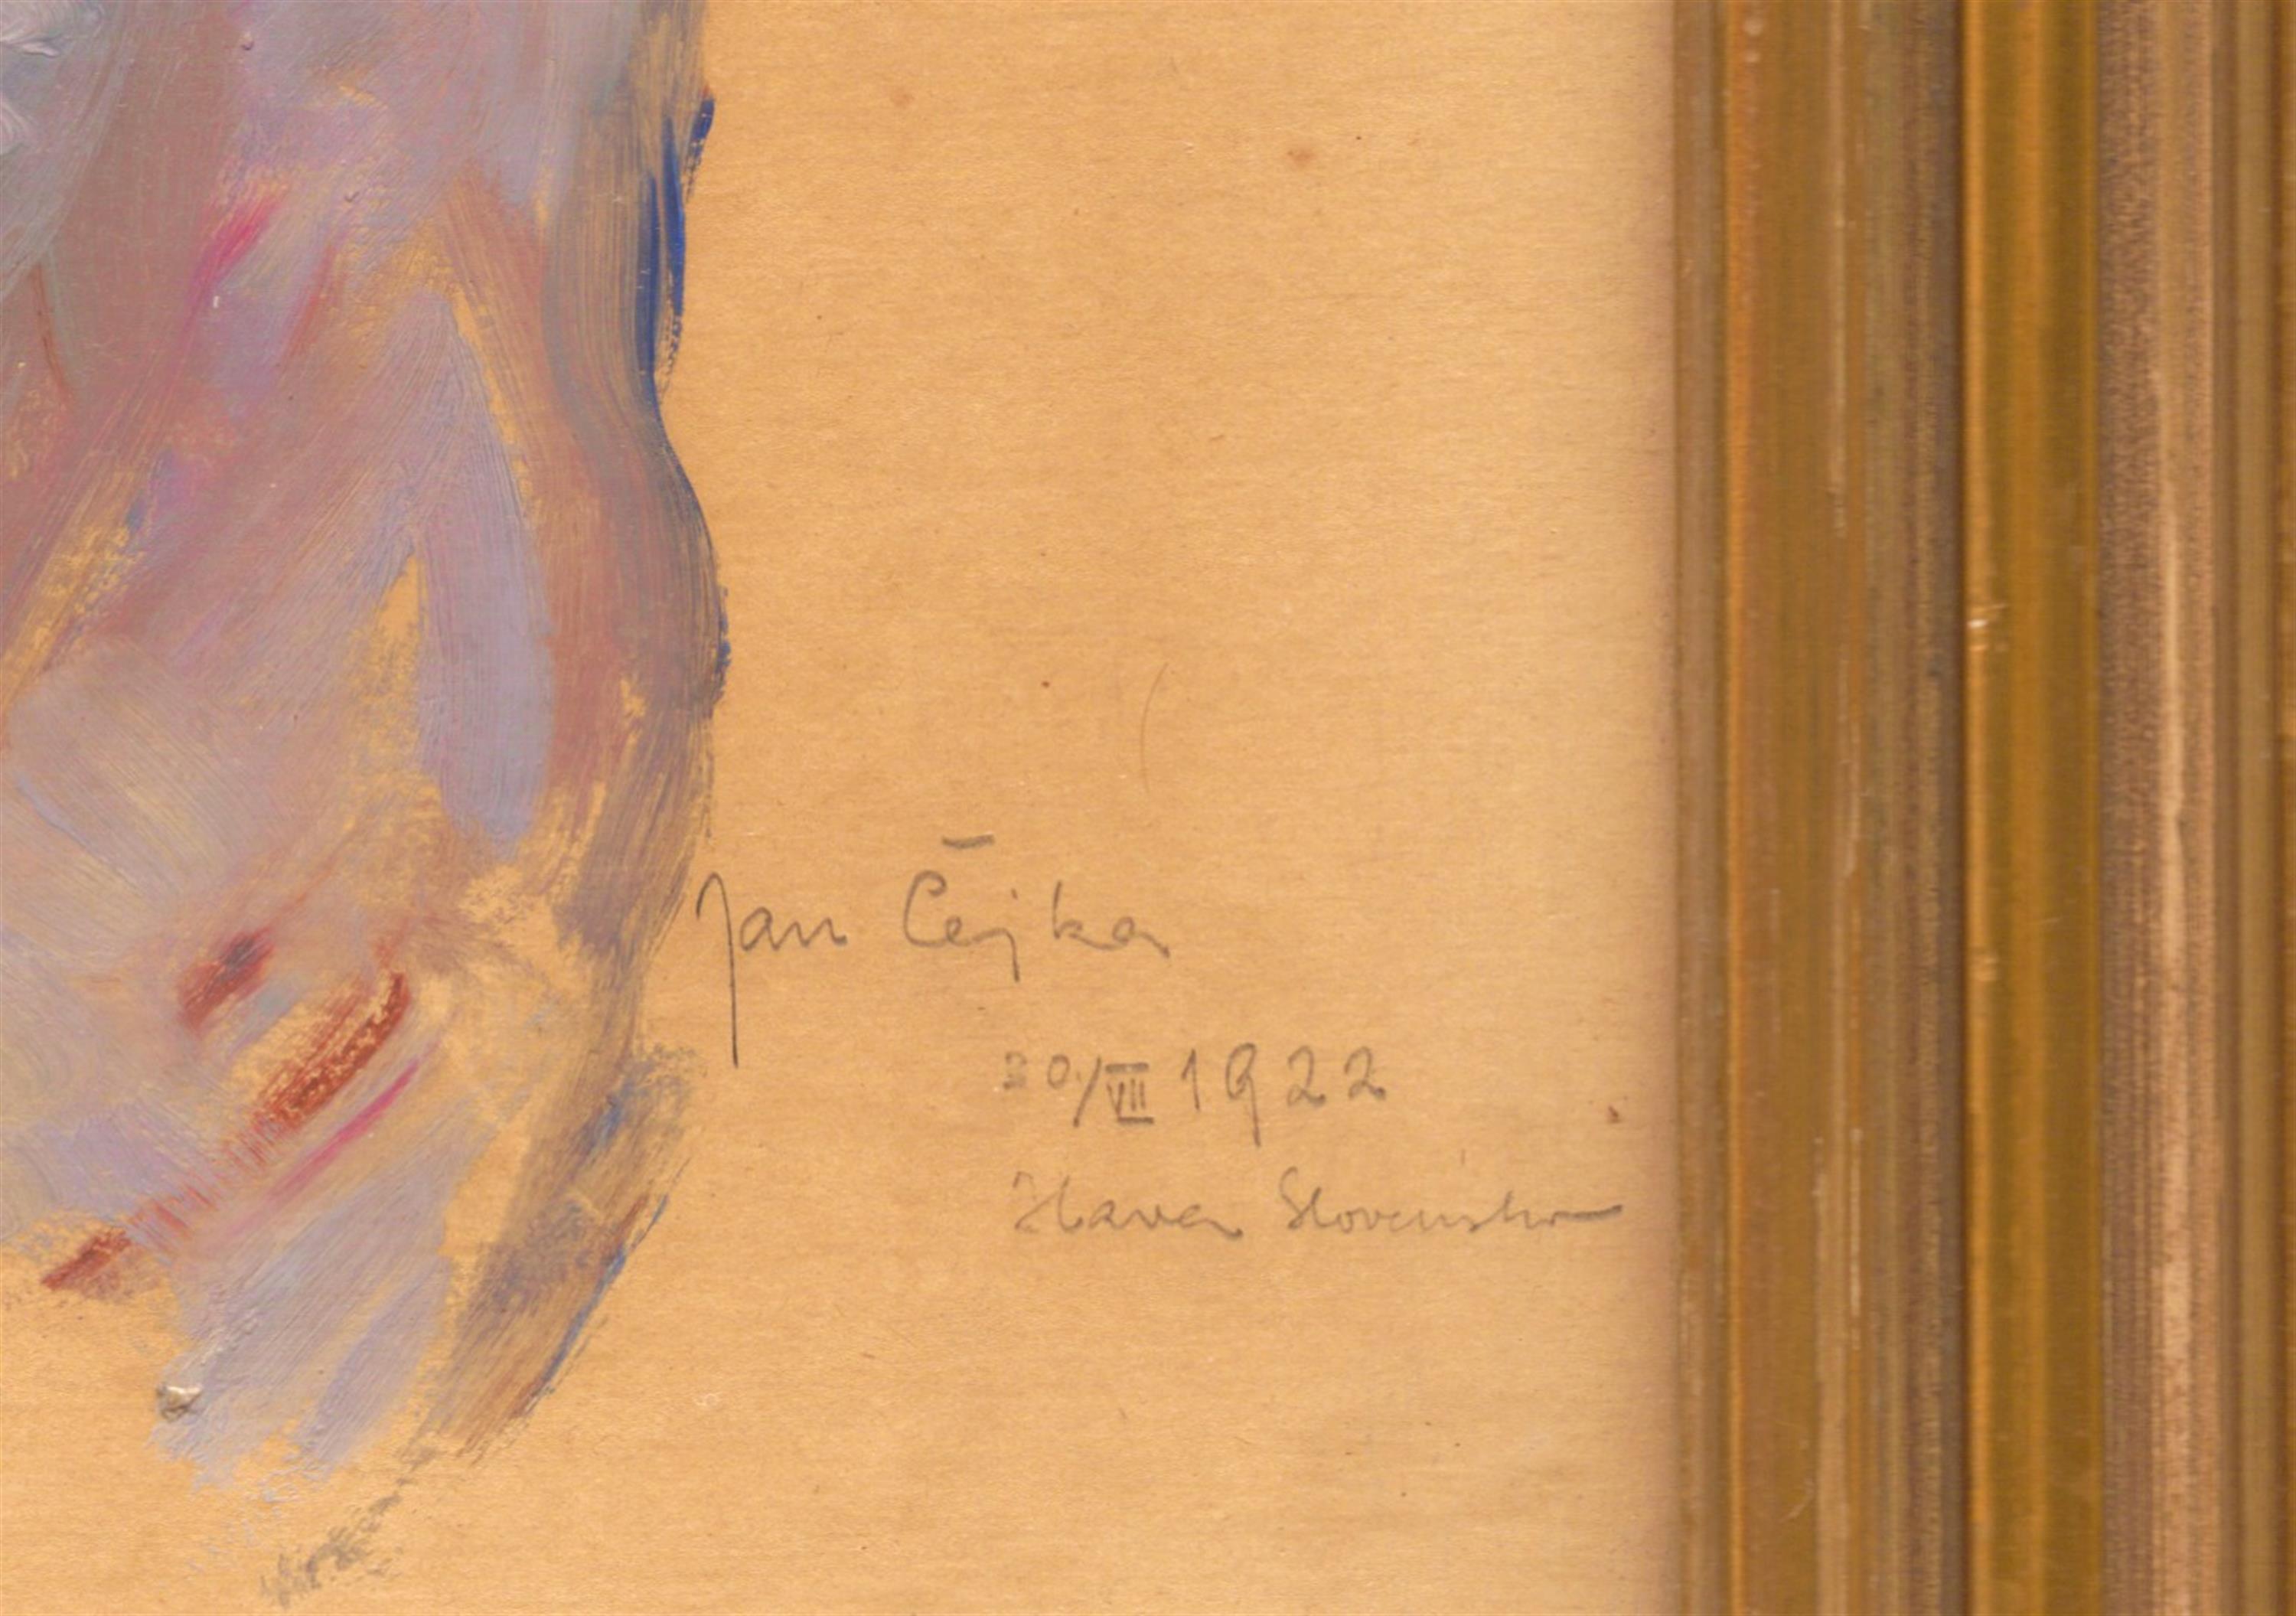 Jan Čejka
30/VII 1922
Slovensko